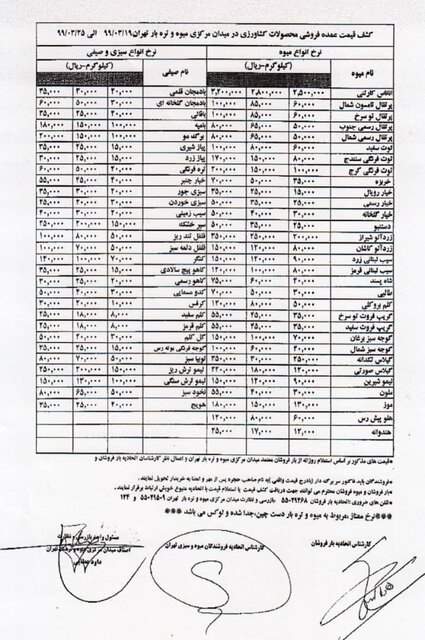 کشف قیمت عمده فروشی محصولات کشاورزی در میدان مرکزی میوه و تره بار تهران ۹۹/۰۲/۱۹ الی ۹۹/۰۲/۲۵
نرخ انواع میوه نرخ انواع سبزی و صیفی
نام میوه (کیلوگرم-ریال) نام صیفی (کیلوگرم-ریال)
آناناس کارتنی ۲,۵۰۰,۰۰۰ ۲,۸۰۰,۰۰۰ ۳,۲۰۰,۰۰۰ بادمجان قلمی ۲۰,۰۰۰ ۳۰,۰۰۰ ۳۵,۰۰۰
پرتقال تامسون شمال ۶۰,۰۰۰ ۸۵,۰۰۰ ۱۰۰,۰۰۰ بادمجان گلخانه ای ۳۰,۰۰۰ ۵۰,۰۰۰ ۶۰,۰۰۰
پرتقال تو سرخ ۶۰,۰۰۰ ۸۵,۰۰۰ ۱۰۰,۰۰۰ باقالی ۲۰,۰۰۰ ۲۵,۰۰۰ ۳۵,۰۰۰
پرتقال رسمی جنوب ۵۰,۰۰۰ ۶۵,۰۰۰ ۸۰,۰۰۰ بامیه ۱۰۰,۰۰۰ ۱۵۰,۰۰۰ ۱۸۰,۰۰۰
پرتقال رسمی شمال ۵۰,۰۰۰ ۶۵,۰۰۰ ۸۰,۰۰۰ برگ مو ۱۰۰,۰۰۰ ۱۵۰,۰۰۰ ۲۰۰,۰۰۰
توت سفید ۶۰,۰۰۰ ۸۰,۰۰۰ ۱۰۰,۰۰۰ پیاز شیری ۱۵,۰۰۰ ۲۵,۰۰۰ ۳۵,۰۰۰
توت فرنگی سنندج ۸۰,۰۰۰ ۱۵۰,۰۰۰ ۱۷۰,۰۰۰ پیاز زرد ۱۵,۰۰۰ ۲۵,۰۰۰ ۳۰,۰۰۰
توت فرنگی کرج ۱۰۰,۰۰۰ ۱۵۰,۰۰۰ ۲۰۰,۰۰۰ تره فرنگی ۲۰,۰۰۰ ۵۰,۰۰۰ ۶۰,۰۰۰
خربزه ۳۵,۰۰۰ ۵۰,۰۰۰ ۷۰,۰۰۰ خیار چنبر ۲۰,۰۰۰ ۴۵,۰۰۰ ۵۵,۰۰۰
خیار رویال ۱۵,۰۰۰ ۲۵,۰۰۰ ۳۵,۰۰۰ سبزی جور ۲۰,۰۰۰ ۳۰,۰۰۰ ۳۵,۰۰۰
خیار رسمی ۲۵,۰۰۰ ۳۵,۰۰۰ ۵۰,۰۰۰ سبزی خوردن ۲۰,۰۰۰ ۳۰,۰۰۰ ۴۰,۰۰۰
خیار گلخانه ۳۰,۰۰۰ ۴۰,۰۰۰ ۵۰,۰۰۰ سیب زمینی ۲۵,۰۰۰ ۳۰,۰۰۰ ۴۰,۰۰۰
دستنبو ۲۵,۰۰۰ ۳۵,۰۰۰ ۵۰,۰۰۰ سیر خشکه ۱۵۰,۰۰۰ ۲۰۰,۰۰۰ ۲۵۰,۰۰۰
زردآلو شیراز ۲۰۰,۰۰۰ ۲۵۰,۰۰۰ ۳۵۰,۰۰۰ فلفل تند ریز ۵۰,۰۰۰ ۷۰,۰۰۰ ۱۰۰,۰۰۰
زردآلو کاشان ۸۰,۰۰۰ ۱۲۰,۰۰۰ ۱۵۰,۰۰۰ فلفل دلمه سبز ۵۰,۰۰۰ ۷۰,۰۰۰ ۱۰۰,۰۰۰
سیب لبنانی زرد ۹۰,۰۰۰ ۱۲۰,۰۰۰ ۱۵۰,۰۰۰ کنگر ۷۰,۰۰۰ ۱۰۰,۰۰۰ ۱۲۰,۰۰۰
سیب لبنانی قرمز ۸۰,۰۰۰ ۱۰۰,۰۰۰ ۱۲۰,۰۰۰ کاهو پیچ سالادی ۱۵,۰۰۰ ۲۵,۰۰۰ ۳۵,۰۰۰
شاه پسند ۳۰,۰۰۰ ۶۰,۰۰۰ ۷۵,۰۰۰ کاهو رسمی ۲۰,۰۰۰ ۳۰,۰۰۰ ۳۵,۰۰۰
طالبی ۳۰,۰۰۰ ۵۰,۰۰۰ ۷۰,۰۰۰ کدو مسمایی ۲۰,۰۰۰ ۴۰,۰۰۰ ۵۰,۰۰۰
کلم بروکلی ۵۰,۰۰۰ ۸۰,۰۰۰ ۱۲۰,۰۰۰ کرفس ۱۰,۰۰۰ ۲۰,۰۰۰ ۳۰,۰۰۰
گریپ فروت تو سرخ ۳۵,۰۰۰ ۴۵,۰۰۰ ۵۵,۰۰۰ کلم سفید ۸,۰۰۰ ۱۸,۰۰۰ ۲۵,۰۰۰
گریپ فروت سفید ۳۵,۰۰۰ ۴۵,۰۰۰ ۵۵,۰۰۰ کلم قرمز ۸,۰۰۰ ۱۸,۰۰۰ ۲۵,۰۰۰
گوجه سبز برغان ۷۰,۰۰۰ ۱۰۰,۰۰۰ ۱۵۰,۰۰۰ گل کلم ۲۰,۰۰۰ ۴۰,۰۰۰ ۵۰,۰۰۰
گوجه سبز شمال ۲۰,۰۰۰ ۶۰,۰۰۰ ۱۰۰,۰۰۰ گوجه فرنگی بوته رس ۱۵,۰۰۰ ۲۵,۰۰۰ ۳۵,۰۰۰
گیلاس تکدانه ۲۵۰,۰۰۰ ۳۰۰,۰۰۰ ۳۵۰,۰۰۰ لوبیا سبز ۵۰,۰۰۰ ۷۰,۰۰۰ ۸۰,۰۰۰
گیلاس صورتی ۱۲۰,۰۰۰ ۱۵۰,۰۰۰ ۲۲۰,۰۰۰ لیمو ترش ریز ۱۵۰,۰۰۰ ۲۰۰,۰۰۰ ۲۵۰,۰۰۰
لیمو شیرین ۹۰,۰۰۰ ۱۲۰,۰۰۰ ۱۵۰,۰۰۰ لیمو ترش سنگی ۱۰۰,۰۰۰ ۱۳۰,۰۰۰ ۱۵۰,۰۰۰
ملون ۳۰,۰۰۰ ۴۵,۰۰۰ ۵۵,۰۰۰ نخود سبز ۵۰,۰۰۰ ۶۵,۰۰۰ ۸۰,۰۰۰
موز ۱۳۰,۰۰۰ ۱۵۰,۰۰۰ ۱۸۰,۰۰۰ هویج ۲۰,۰۰۰ ۲۵,۰۰۰ ۳۵,۰۰۰
هلو پیش رس ۶۰,۰۰۰ ۸۰,۰۰۰ ۱۲۰,۰۰۰
هندوانه ۱۲,۰۰۰ ۱۷,۰۰۰ ۲۵,۰۰۰
قیمت های مذکور بر اساس استعلام روزانه از بارفروشان معتمد میدان مرکزی میوه و تره بار تهران و اعمال نظر کارشناسان اتحادیه بار فروشان و
فروشندگان باید فاکتور سربرگ دار
بار فروشان و میوه فروشان محترم می توانند جهت دریافت کشف قیمت با استعلام قیمت با اتحادیه متبوع خویش ارتباط برقرار نمایند.
تلفن های ضروری اتحادیه بار فروشان ۵۵۰۲۹۲۶۸ بازرسی و نظارت میدان مرکزی میوه و تره بار تهران
***نرخ ممتاز، مربوط به میوه و تره بار دست چین، جدا شده و لوکس می باشد***
کارشناس اتحادیه بار فروشان
کارشناس اتحادیه فروشندگان میوه و سبزی تهران
مسئول واحد بازرسی و نظارت
اصناف میدان مرکزی میوه و تره بار تهران